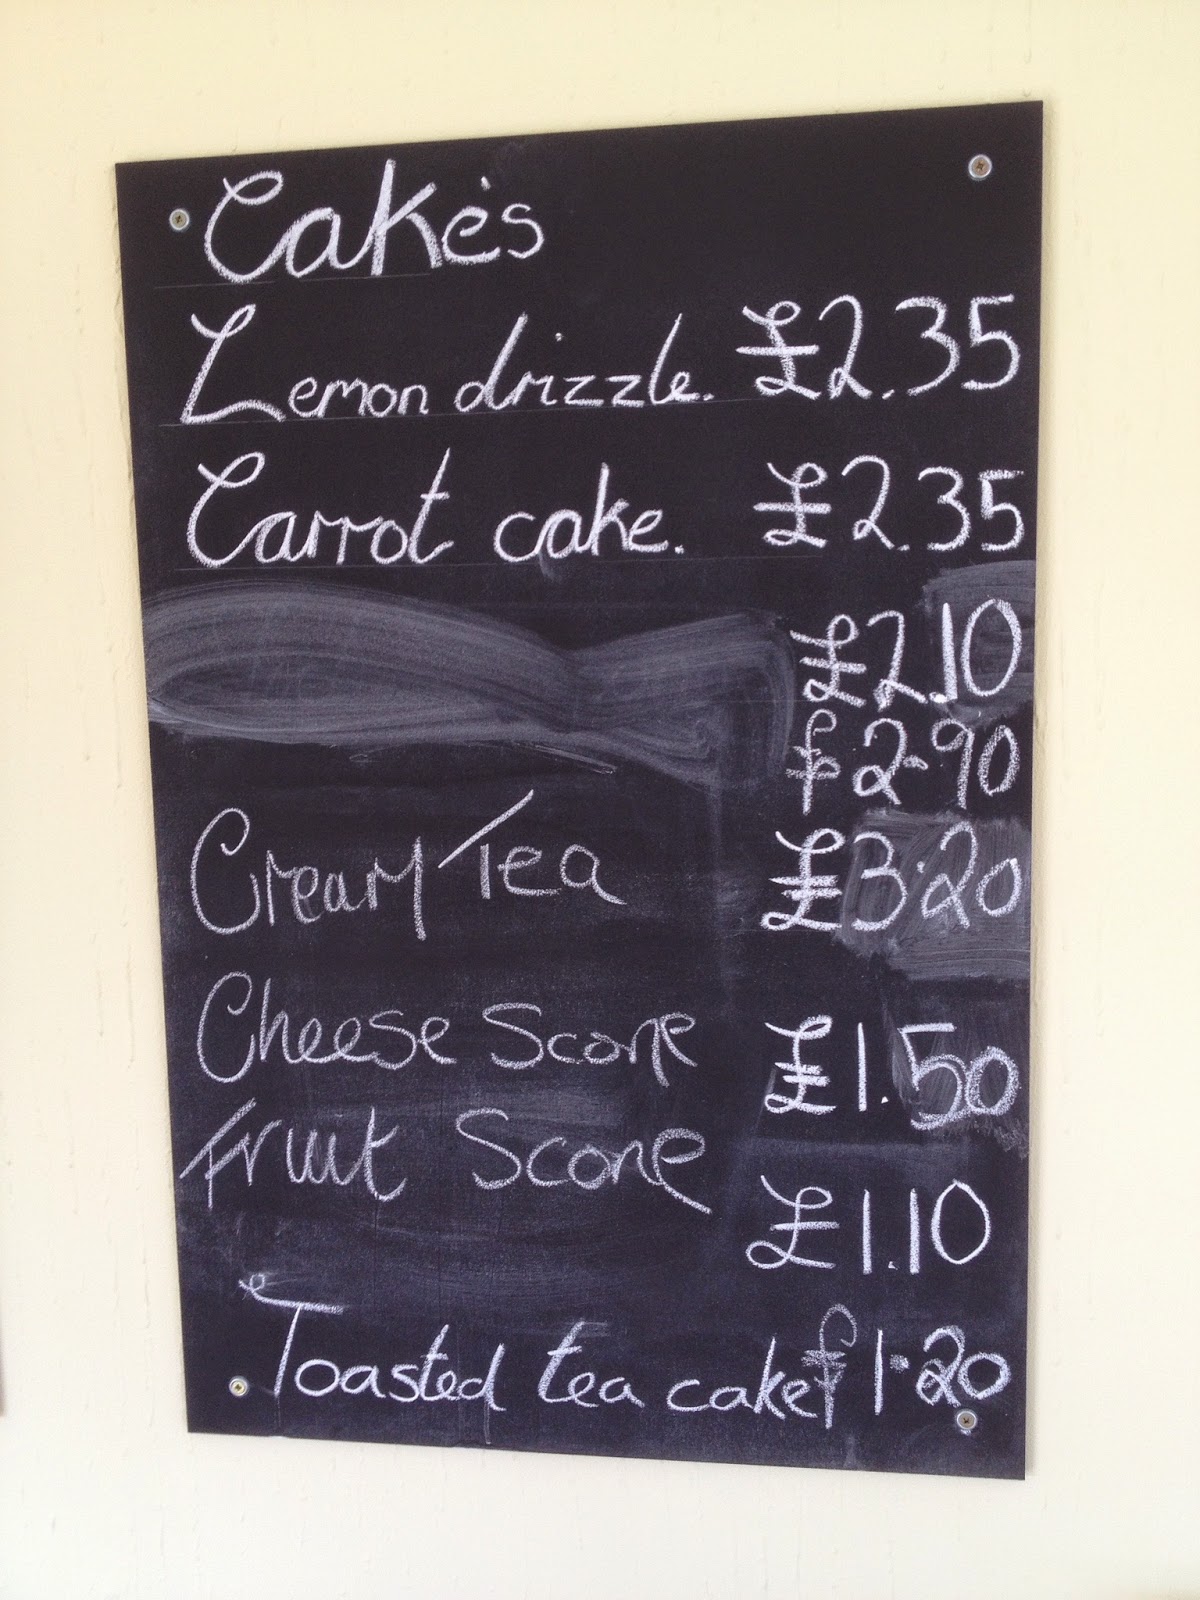 Cake's
Lemon drizzle. £2.35
Carrot cake. £2.35
£2.10
£2.90
Cream Tea £3.20
Cheese Scone £1.50
Fruit Scone £1.10
Toasted tea cake £1.20